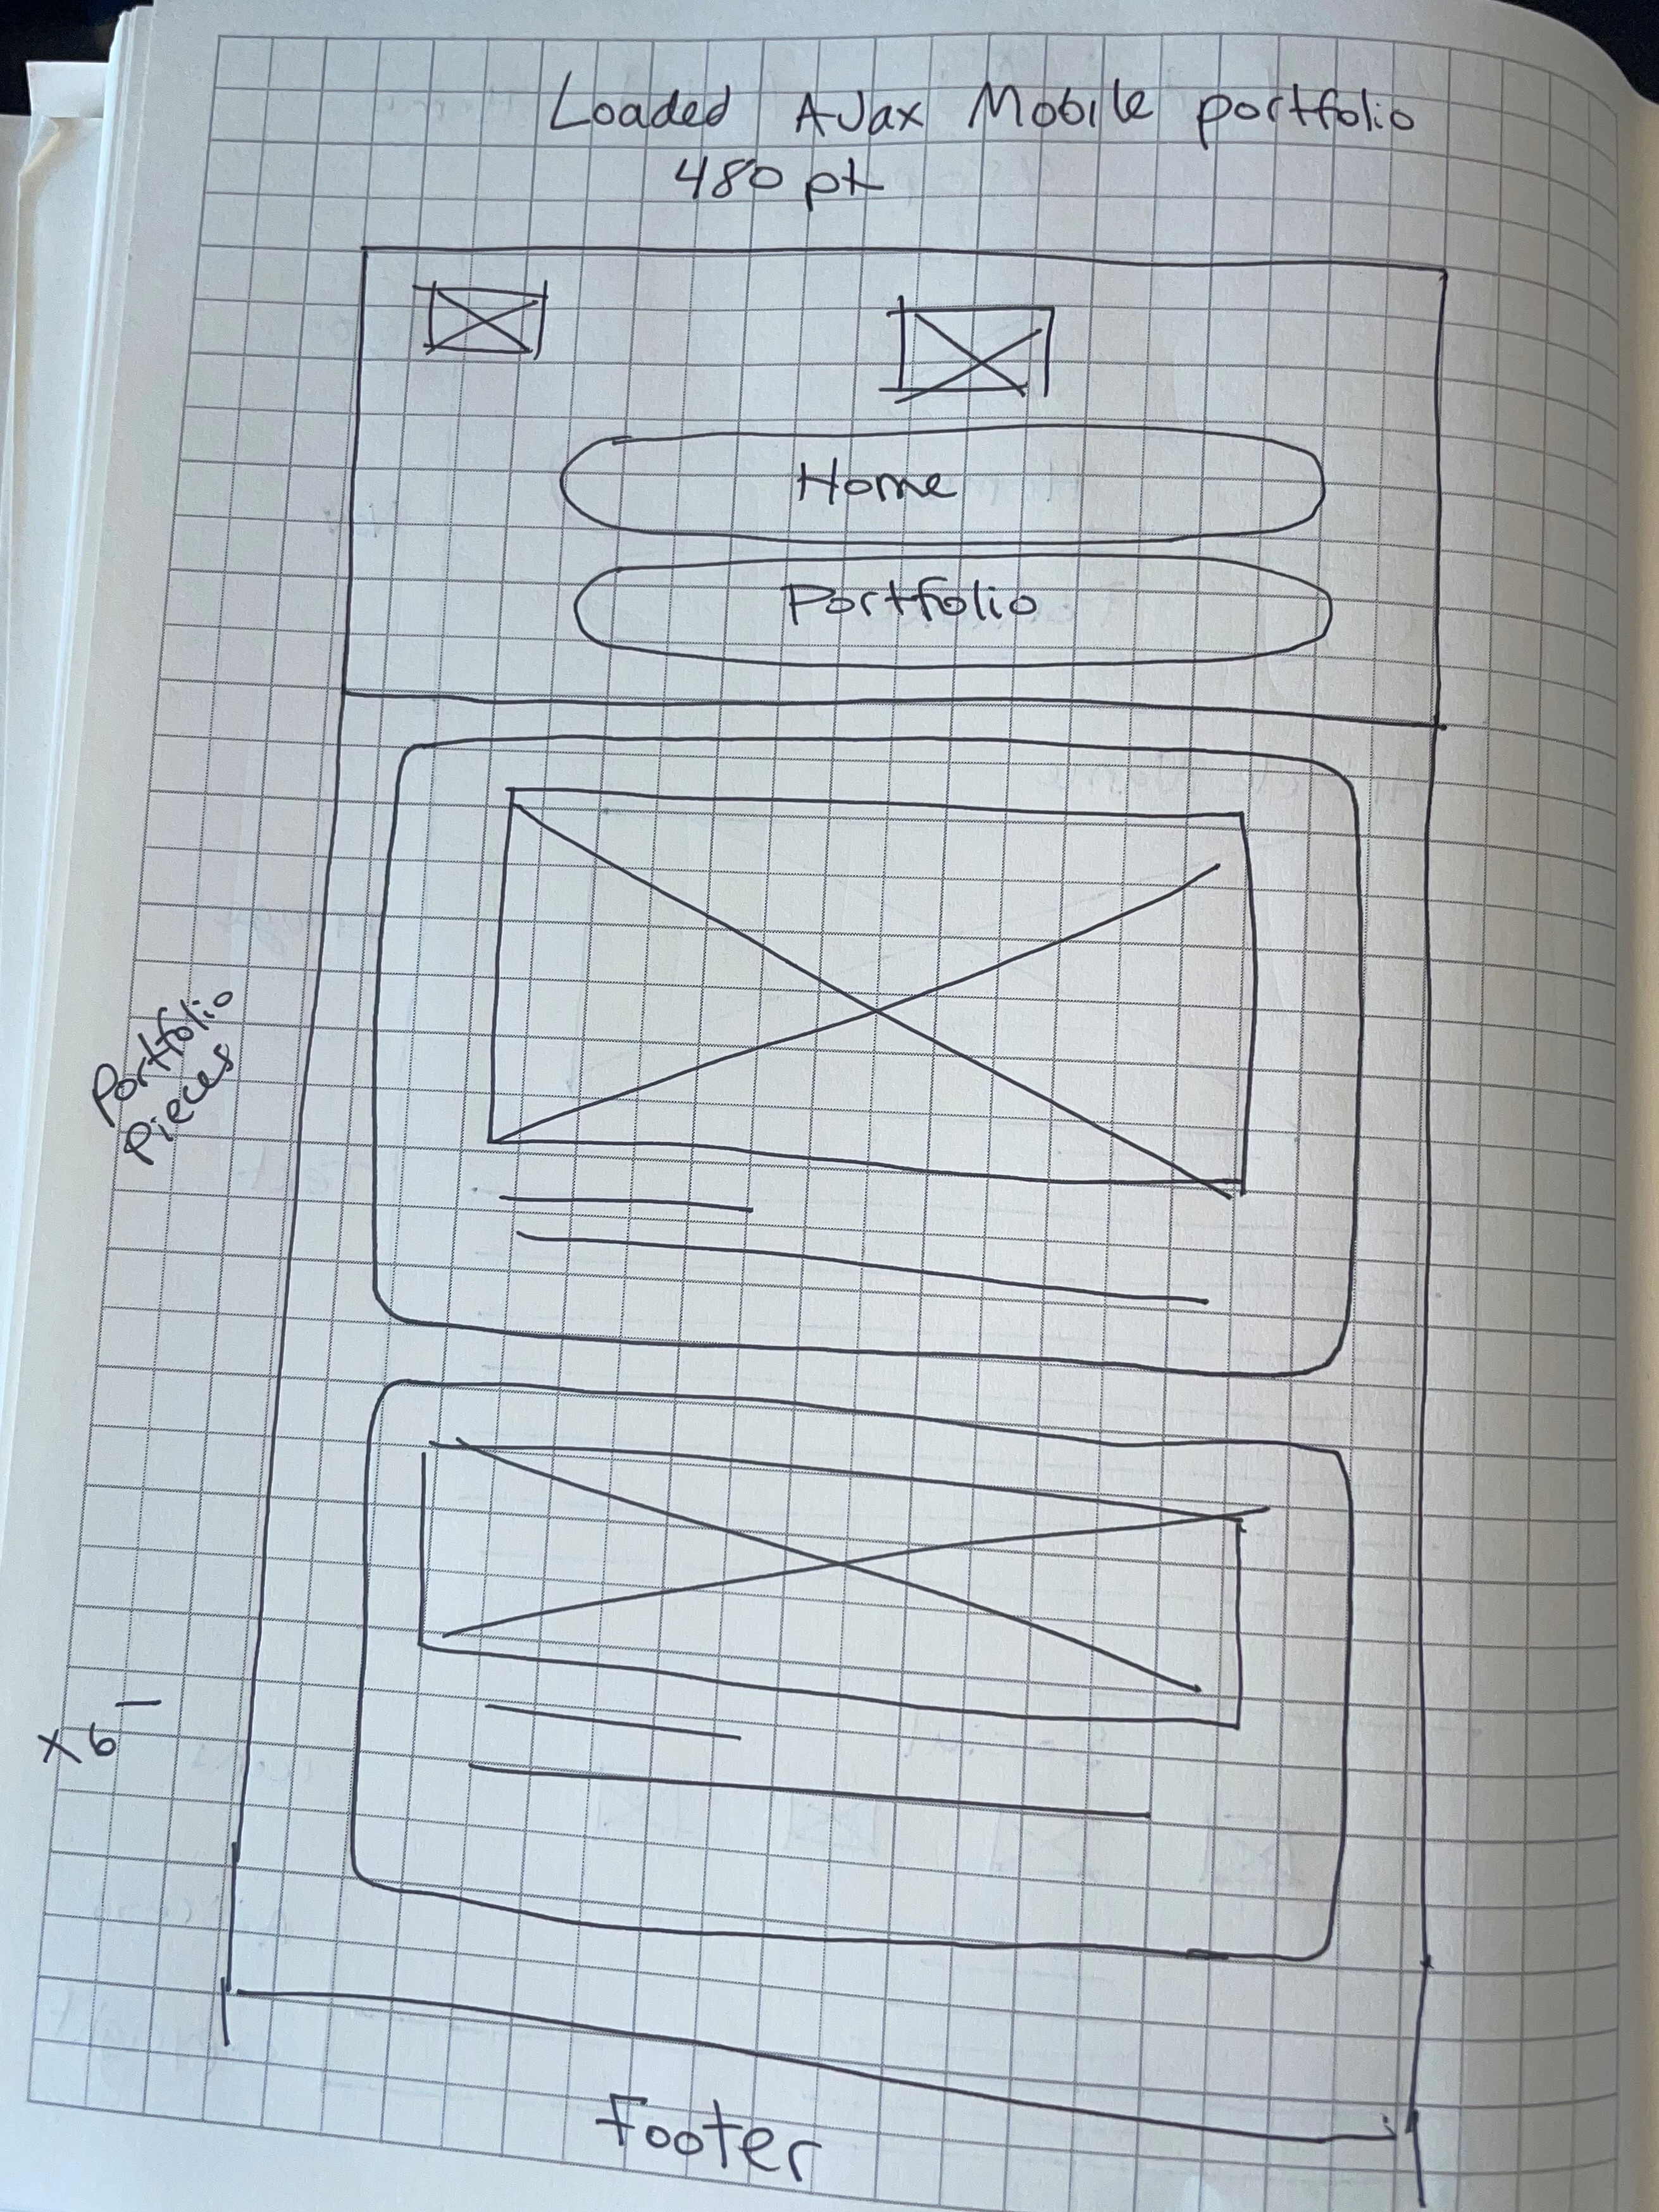 Loaded AJax Mobile portfolio
480 pt
Home
Portfolio
Portfolio
Pieces
x6
Footer